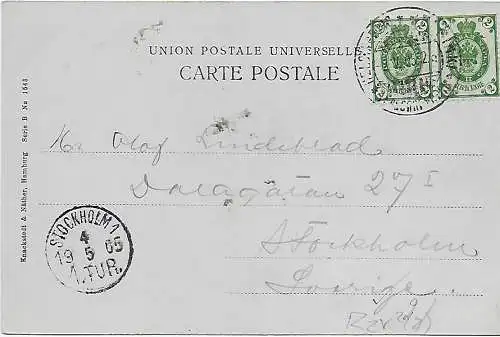 UNION POSTALE UNIVERSELLE
CARTE POSTALE
2 2
Hr Olof Lindeblad
Dalagatan 27 I
Stockholm
Sverige
STOCKHOLM 1
4
19 5 05
1.TUR.
Knackstedt & Näther, Hamburg Serie B No 1643